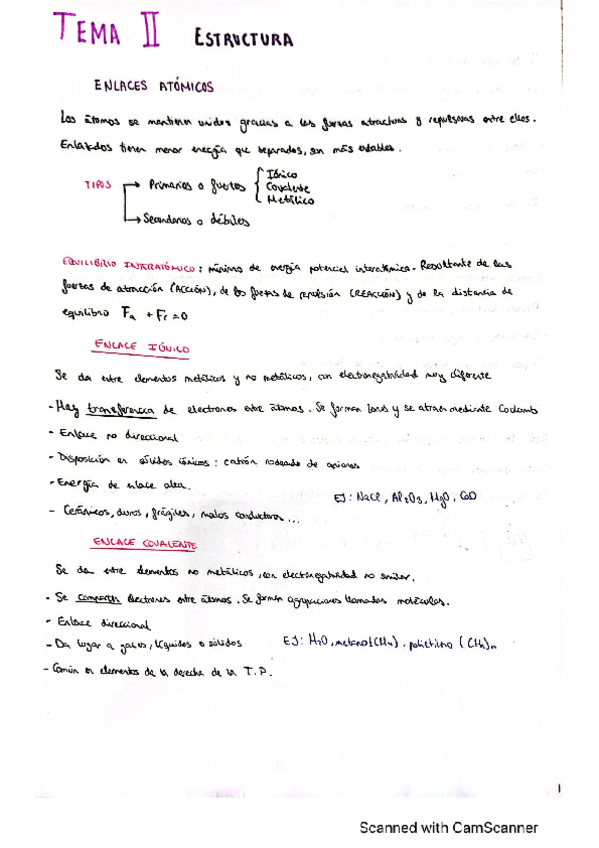 TEMA II ESTRUCTURA
ENLACES ATÓMICOS
Los átomos se mantienen unidos gracias a las fuerzas atractivas y repulsivas entre ellos.
Enlazados tienen menor energía que separados, son más estables.
TIPOS → Primarios o fuertes { Iónico
Covalente
Metálico
→ Secundarios o débiles
EQUILIBRIO INTERATÓMICO: mínimo de energía potencial interatómica. Resultante de las
fuerzas de atracción (ACCIÓN), de las fuerzas de repulsión (REACCIÓN) y de la distancia de
equilibrio Fa + Fr = 0
ENLACE IÓNICO
Se da entre elementos metálicos y no metálicos, con electronegatividad muy diferente
- Hay transferencia de electrones entre átomos. Se forman iones y se atraen mediante Coulomb
- Enlace no direccional
- Disposición en sólidos iónicos: catión rodeado de aniones
- Energía de enlace alta.
EJ: NaCl, Al2O3, MgO, CaO
- Cerámicos, duros, frágiles, malos conductores...
ENLACE COVALENTE
Se da entre elementos no metálicos, con electronegatividad similar.
- Se comparten electrones entre átomos. Se forman agrupaciones llamadas moléculas.
- Enlace direccional
- Da lugar a gases, líquidos o sólidos
EJ: H2O, metano (CH4), polietileno (CH2)n
- Común en elementos de la derecha de la T.P.
1
Scanned with CamScanner